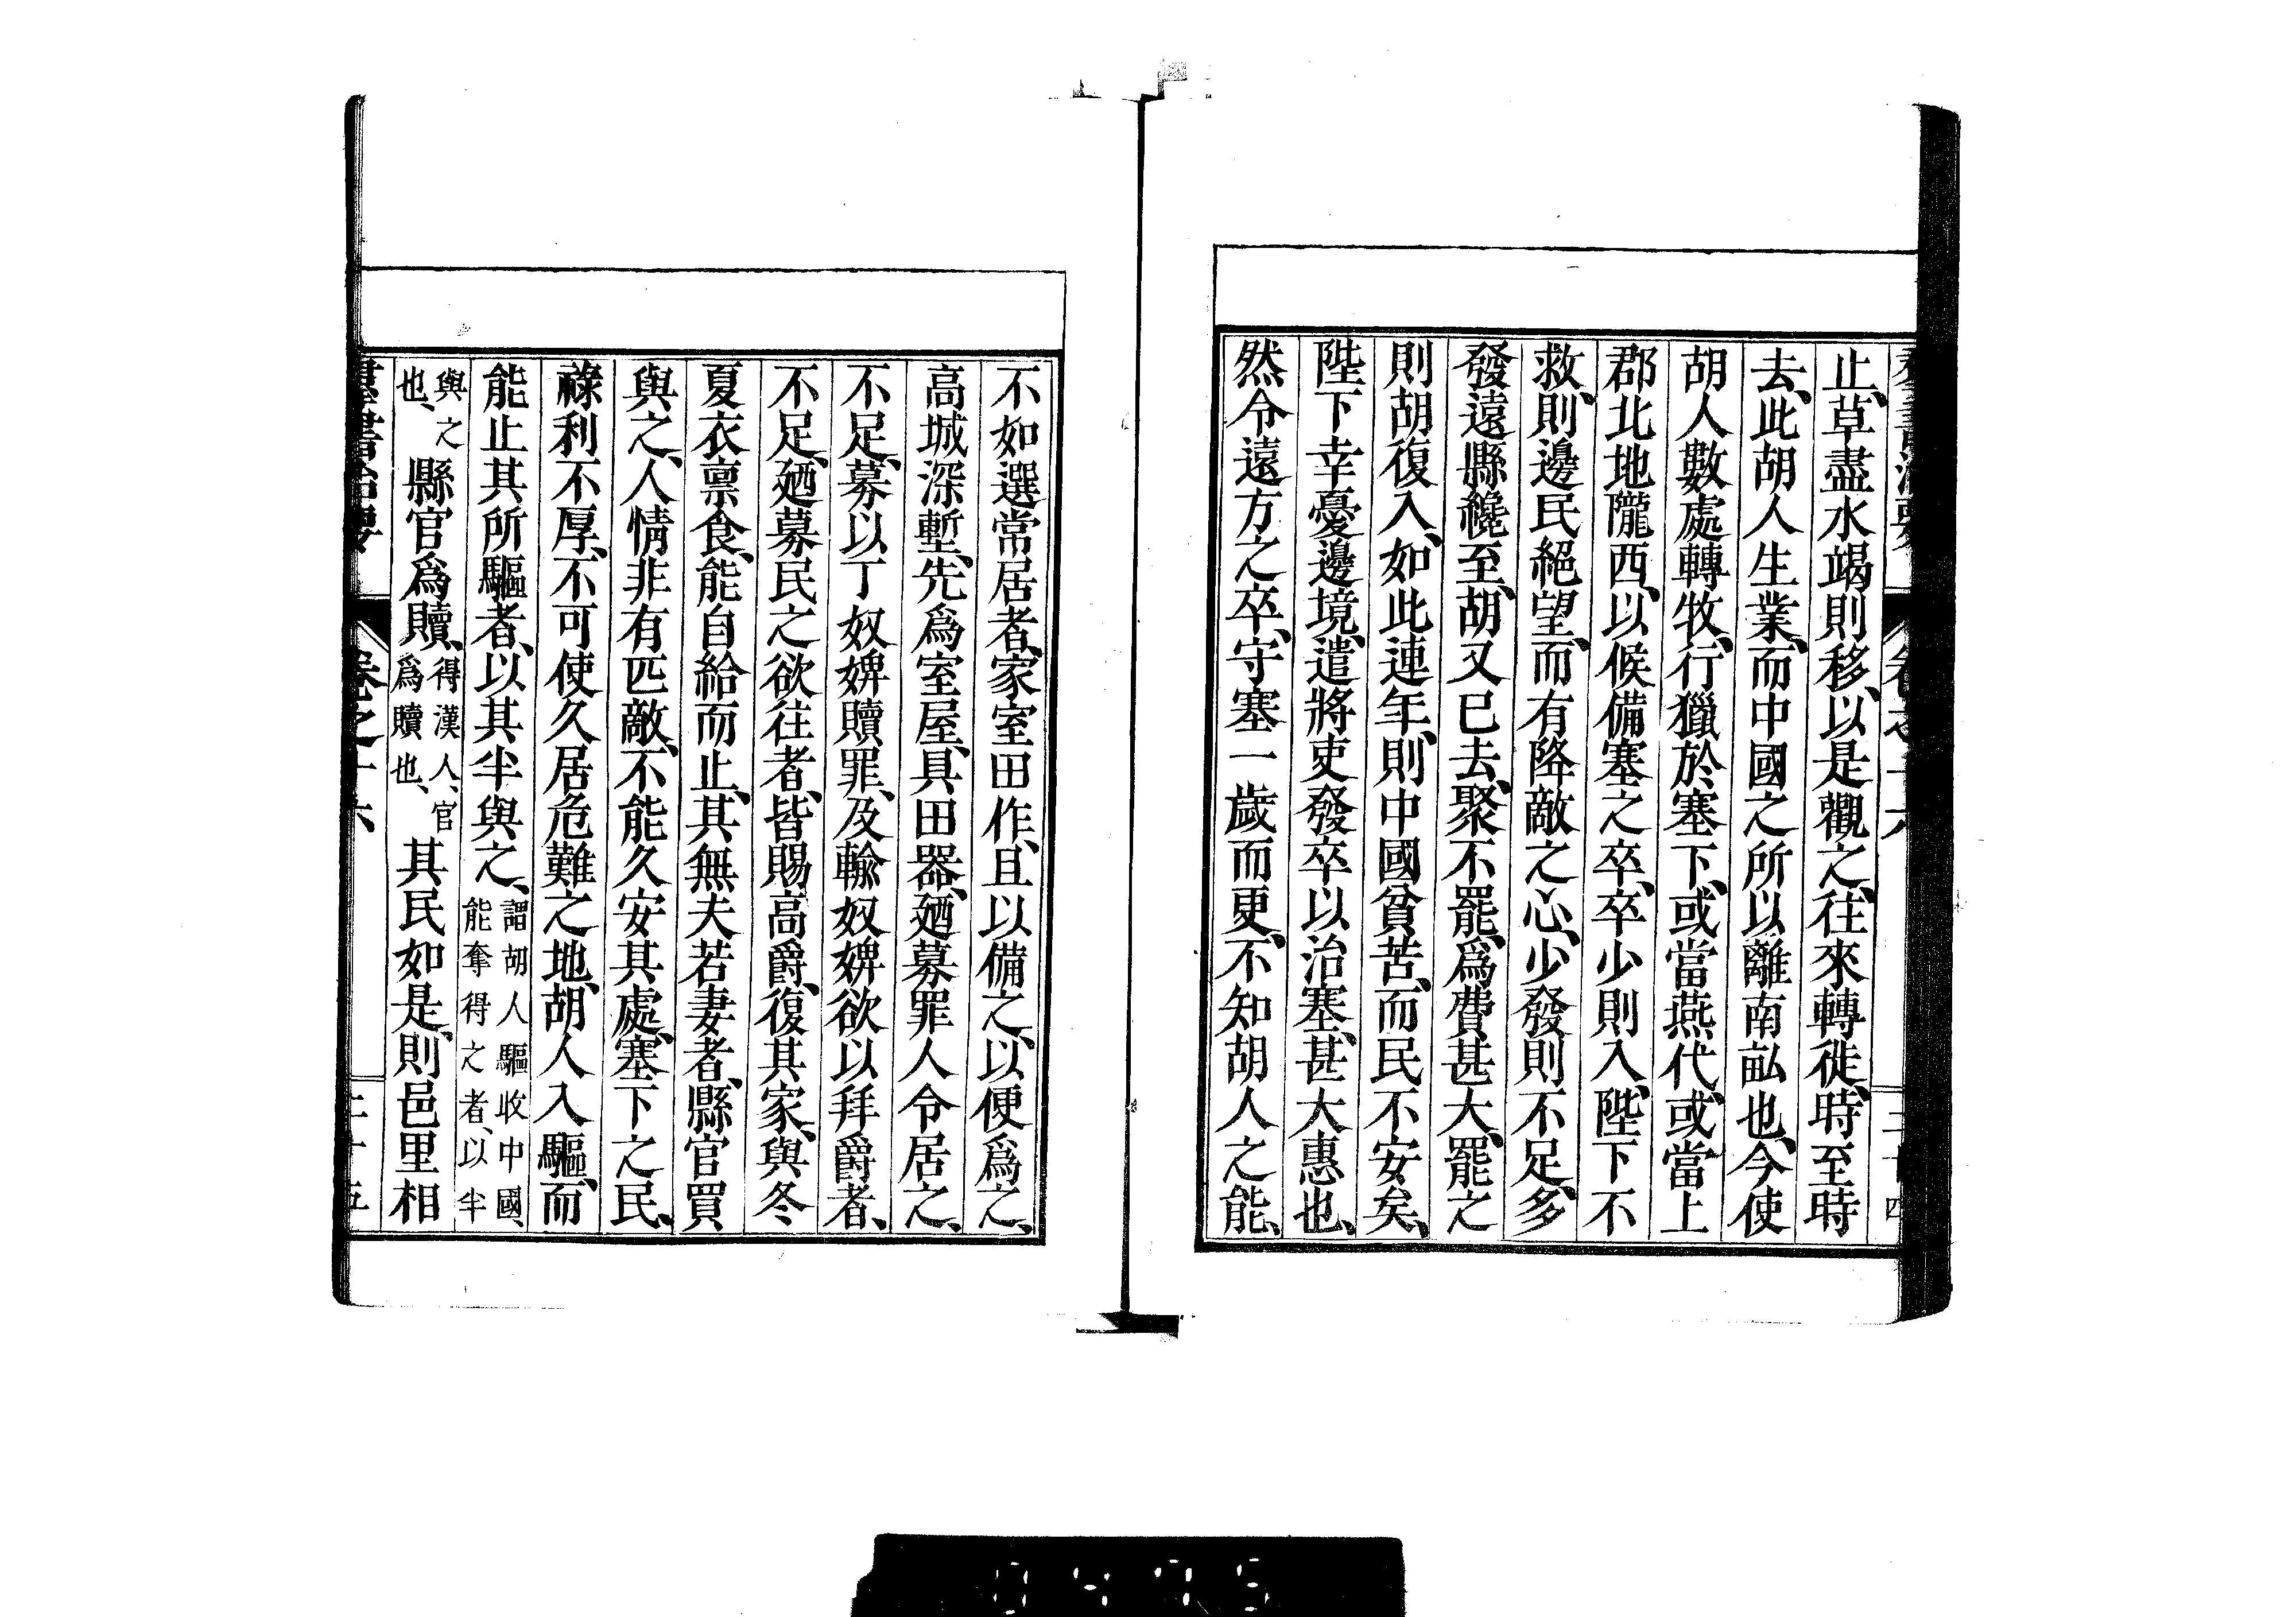 止、草盡水竭則移、以是觀之、往來轉徙、時至時
去、此胡人生業、而中國之所以離南畝也、今使
胡人數處轉牧、行獵於塞下、或當燕代、或當上
郡北地隴西、以候備塞之卒、卒少則入、陛下不
救、則邊民絕望、而有降敵之心、少發則不足、多
發遠縣纔至、胡又已去、聚不罷、爲費甚大、罷之
則胡復入、如此連年、則中國貧苦、而民不安矣、
陛下幸憂邊境、遣將吏發卒以治塞、甚大惠也、
然令遠方之卒、守塞一歲而更、不知胡人之能、
不如選常居者、家室田作、且以備之、以便爲之、
高城深塹、先爲室屋、具田器、廼募罪人令居之、
不足、募以丁奴婢贖罪、及輸奴婢欲以拜爵者、
不足、廼募民之欲往者、皆賜高爵、復其家、與冬
夏衣禀食、能自給而止、其無夫若妻者、縣官買
與之、人情非有匹敵、不能久安其處、塞下之民、
祿利不厚、不可使久居危難之地、胡人入驅、而
能止其所驅者、以其半與之、謂胡人驅收中國、能奪得之者、以半
與之也、縣官爲贖、得漢人、官爲贖也、其民如是、則邑里相
羣書治要 卷之十六 二十五